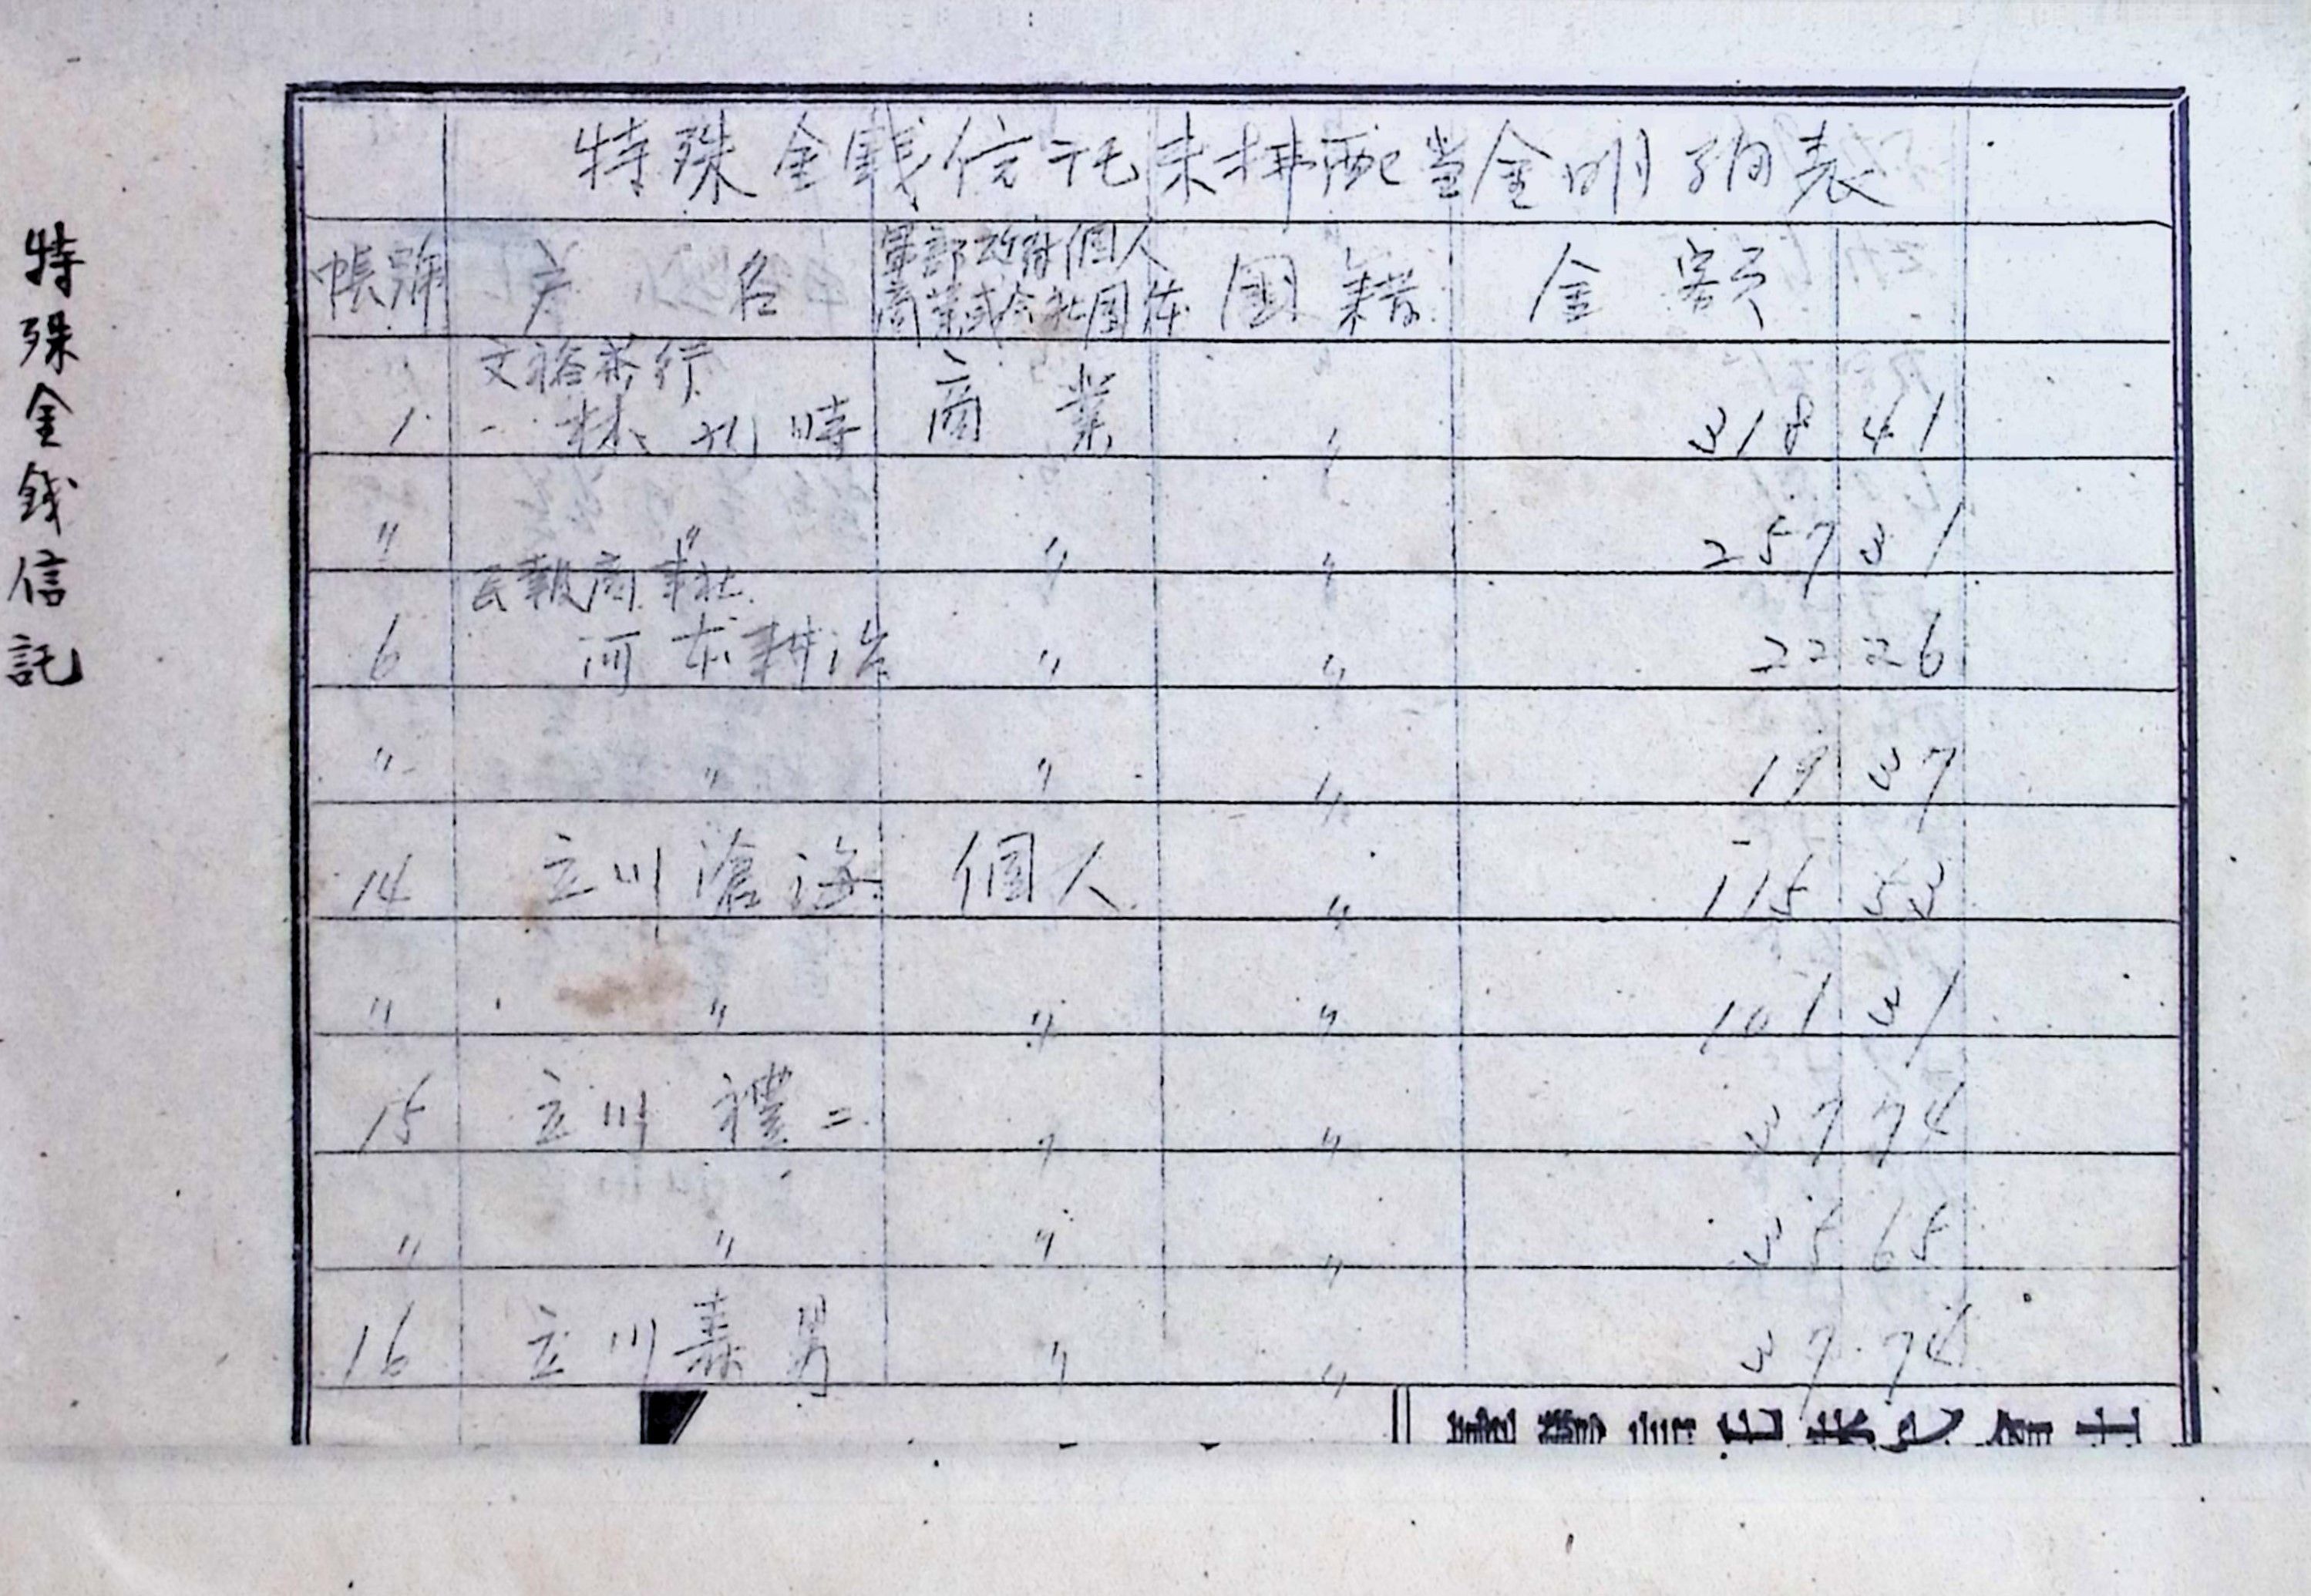 特殊金錢信託
特殊金錢信託未拂配當金明細表
帳號 户名 軍部政府個人商業式会社團体 国籍 金額
文裕茶行
1 林九時 商業 〃 318 41
〃 〃 〃 〃 257 31
民報商事社
6 河本耕治 〃 〃 22 26
〃 〃 〃 〃 19 37
14 立川滄海 個人 〃 115 53
〃 〃 〃 〃 101 31
15 立川禮二 〃 〃 37 74
〃 〃 〃 〃 35 65
16 立川壽男 〃 〃 37 74